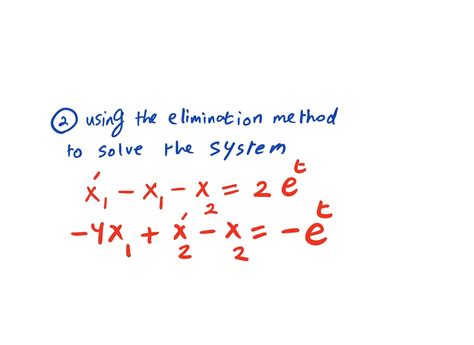 ② using the elimination method
to solve the system
x₁′ - x₁ - x₂ = 2 eᵗ
-4x₁ + x₂′ - x₂ = -eᵗ